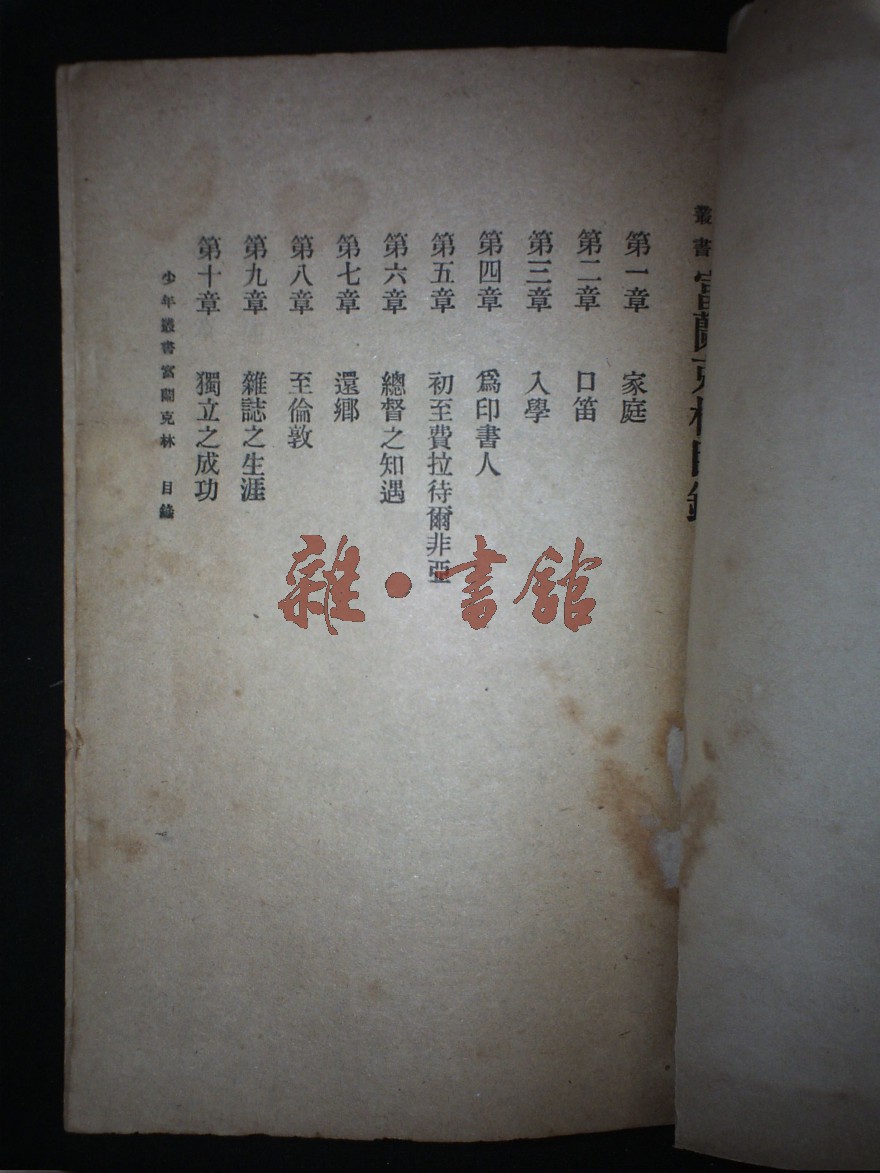 叢書富蘭克林目錄
第一章 家庭
第二章 口笛
第三章 入學
第四章 爲印書人
第五章 初至費拉待爾非亞
第六章 總督之知遇
第七章 還鄉
第八章 至倫敦
第九章 雜誌之生涯
第十章 獨立之成功
少年叢書富蘭克林 目錄
雜·書館